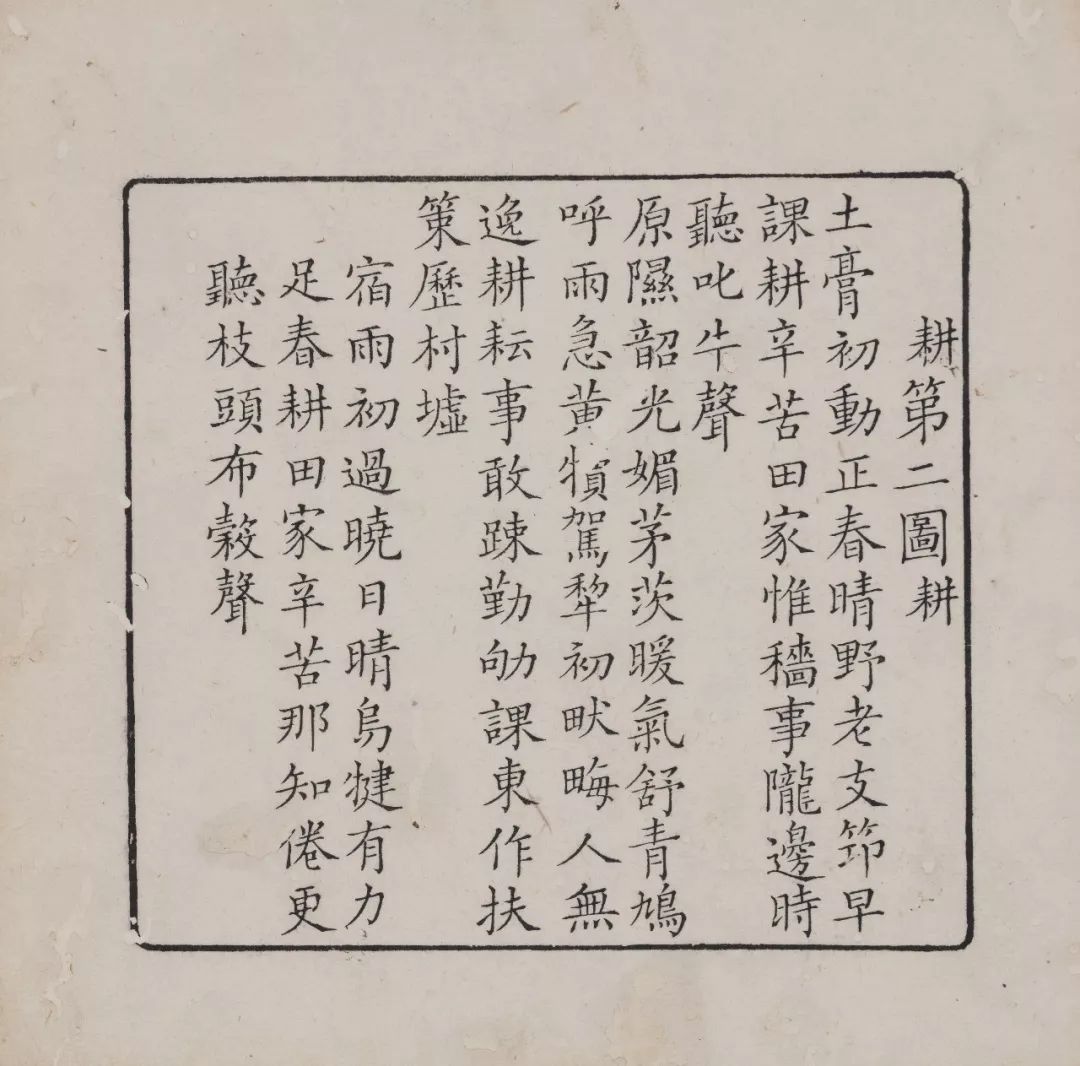 耕第二圖耕
土膏初動正春晴野老支笻早
課耕辛苦田家惟穡事隴邊時
聽叱牛聲
原隰韶光媚茅茨暖氣舒青鳩
呼雨急黃犢駕犂初畎畮人無
逸耕耘事敢踈勤劬課東作扶
策歷村墟
宿雨初過曉日晴烏犍有力
足春耕田家辛苦那知倦更
聽枝頭布穀聲